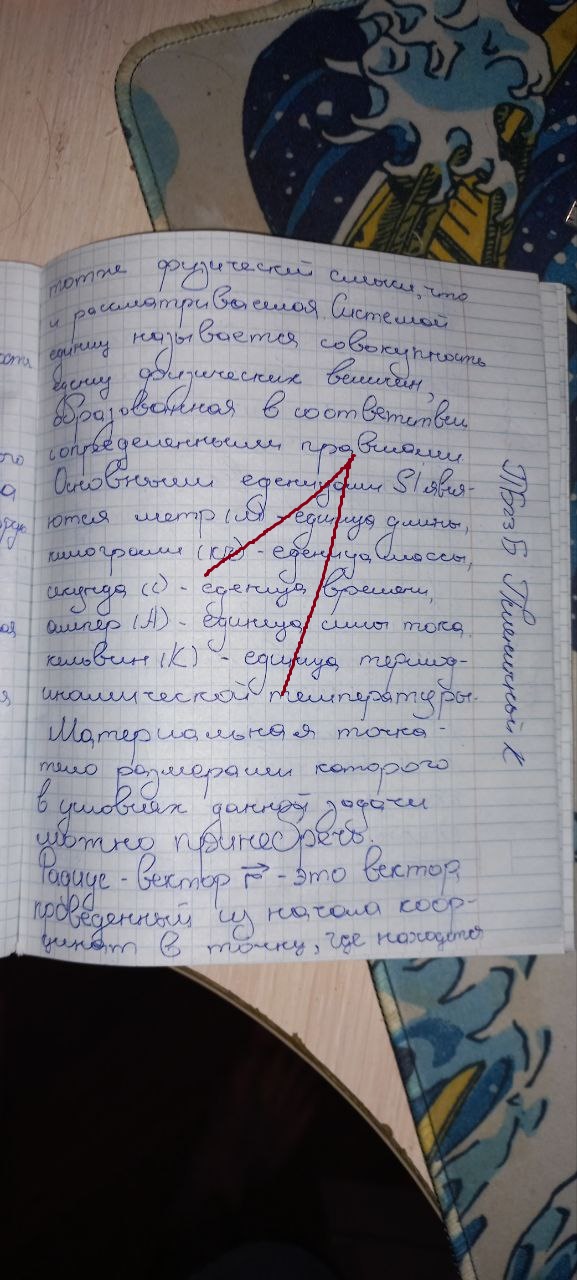 тотже физический смысл, что
и рассматриваемая. Системой
единиц называется совокупность
едениц физических величин,
образованная в соответствии
с определенными правилами.
Основными еденицами SI явля-
ются метр (м) - единица длины,
килограмм (кг) - еденица массы,
секунда (с) - еденица времени,
ампер (А) - единица силы тока
кельвин (К) - единица термод-
инамической температуры.
Материальная точка -
тело размерами которого
в условиях данной задачи
можно принебречь.
Радиус - вектор r - это вектор,
проведенный из начала коор-
динат в точку, где находится